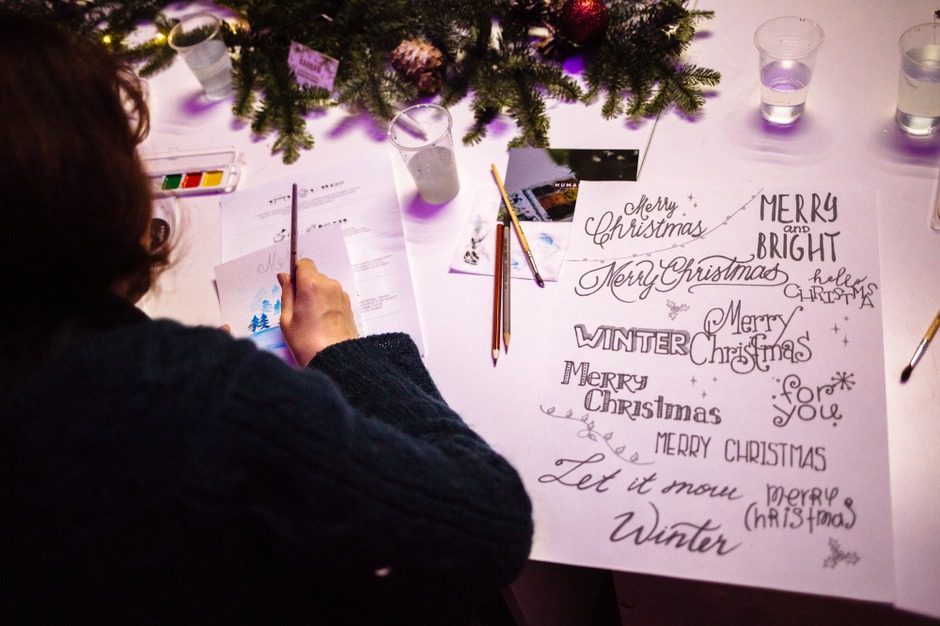 Me
HUMA
Merry
Christmas
MERRY
and
BRIGHT
Merry Christmas
hello
CHRISTMA
WINTER
Merry
Christmas
Merry
Christmas
for
you
MERRY CHRISTMAS
Let it snow
merry
Christmas
Winter